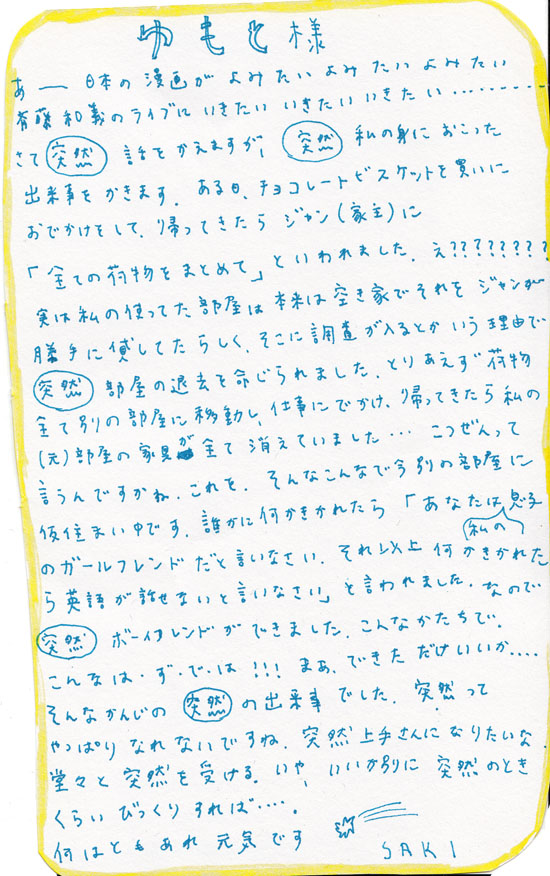 ゆもと様
あー 日本の漫画がよみたいよみたいよみたい
斉藤和義のライブにいきたいいきたいいきたい‥‥‥‥‥
さて 突然 話をかえますが、突然 私の身におこった
出来事をかきます。ある日、チョコレートビスケットを買いに
おでかけをして、帰ってきたら ジャン(家主)に
「全ての荷物をまとめて」といわれました。え????????
実は私の使ってた部屋は本来は空き家でそれをジャンが
勝手に貸してたらしく、そこに調査が入るとかいう理由で
突然 部屋の退去を命じられました。とりあえず荷物
全て別の部屋に移動し、仕事にでかけ、帰ってきたら私の
(元)部屋の家具が全て消えていました… こつぜんって
言うんですかね。これを。そんなこんなで今別の部屋に
仮住まい中です。誰かに何かきかれたら「あなたは私の息子
のガールフレンドだと言いなさい。それ以上何かきかれた
ら英語が話せないと言いなさい」と言われました。なので
突然 ボーイフレンドができました。こんなかたちで。
こんなは・ず・で・は!!! まあ、できただけいいか‥‥
そんなかんじの 突然 の出来事でした。突然って
やっぱりなれないですね。突然上手さんになりたいな。
堂々と突然を受ける。いや、いいか別に 突然のとき
くらいびっくりすれば‥‥。
何はともあれ 元気です
SAKI